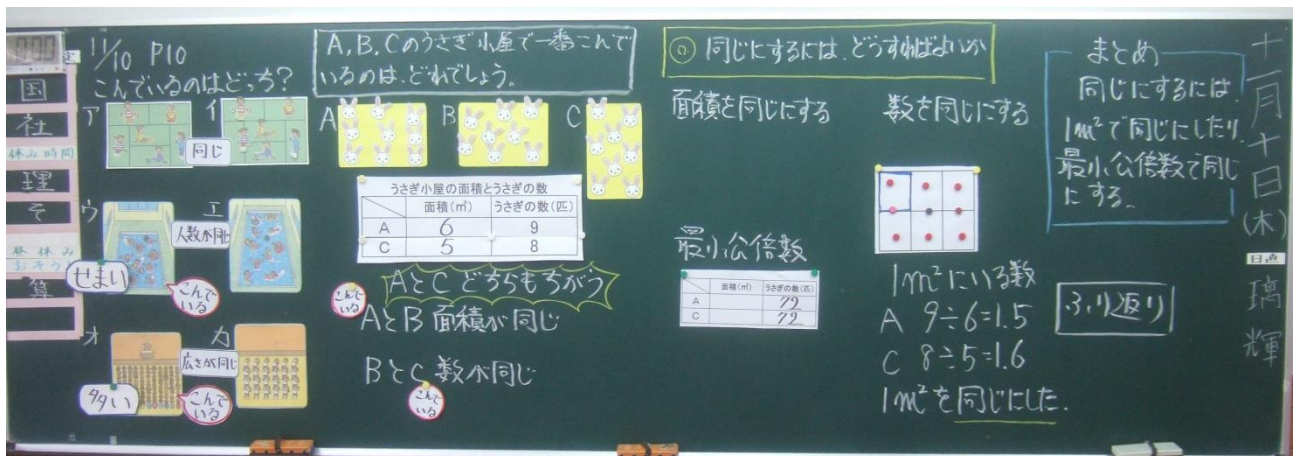 国
社
休み時間
理
そ
昼休み
おそうじ
算
11/10 P10
こんでいるのはどっち?
ア
イ
同じ
ウ
エ
人数が同じ
せまい
こんで
いる
オ
カ
広さが同じ
多い
こんで
いる
A,B,Cのうさぎ小屋で一番こんで
いるのは、どれでしょう。
A
B
C
うさぎ小屋の面積とうさぎの数
面積(㎡) うさぎの数(匹)
A 6 9
C 5 8
AとC どちらもちがう
こんで
いる
AとB 面積が同じ
BとC 数が同じ
こんで
いる
同じにするには、どうすればよいか
面積を同じにする
最小公倍数
面積(㎡) うさぎの数(匹)
A 72
C 72
数を同じにする
1m²にいる数
A 9÷6=1.5
C 8÷5=1.6
1m²を同じにした.
まとめ
同じにするには、
1m²で同じにしたり、
最小公倍数で同じ
にする。
ふり返り
十一月十日(木)
日直
璃輝